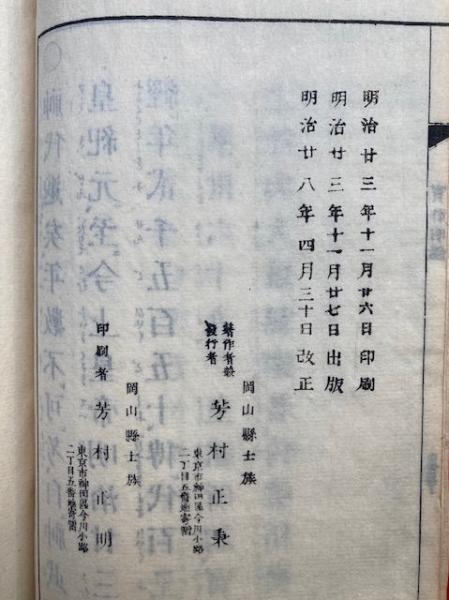 明治廿三年十一月廿六日印刷
明治廿三年十一月廿七日出版
明治廿八年四月三十日改正
岡山縣士族
著作者兼
發行者
芳村正秉
東京市神田區今川小路
二丁目五番地寄留
岡山縣士族
印刷者
芳村正明
東京市神田區今川小路
二丁目五番地寄留